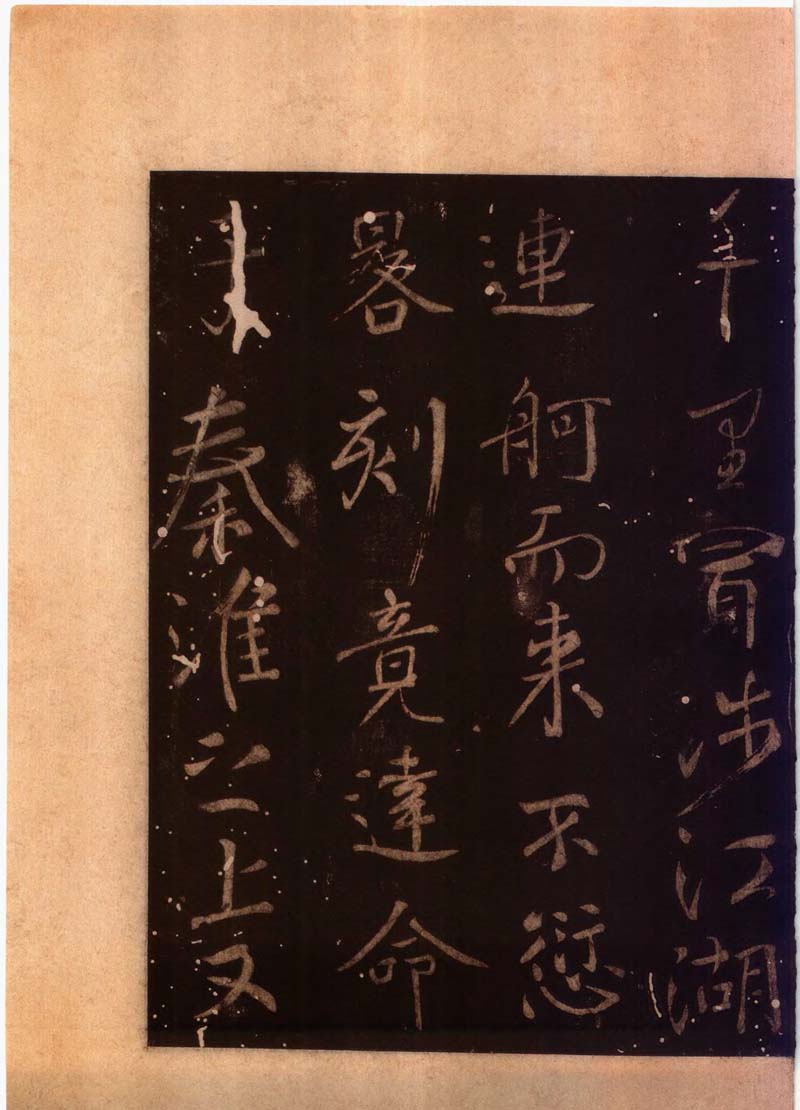 年冒涉江湖
連舸而来不愆
晷刻竟達命
秦淮之上又